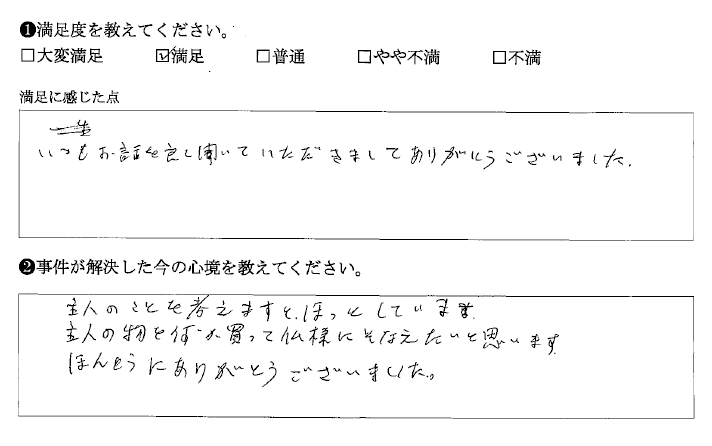 ❶満足度を教えてください。
□大変満足 ☑満足 □普通 □やや不満 □不満
満足に感じた点
いつもお話を良く聞いていただきましてありがとうございました。
❷事件が解決した今の心境を教えてください。
主人のことを考えますと、ほっとしています
主人の物を何か買って仏様にそなえたいと思います
ほんとうにありがとうございました。